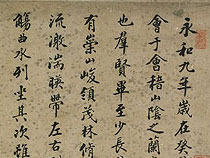 永和九年歲在癸
會于會稽山陰之蘭
也羣賢畢至少長
有崇山峻領茂林脩
流激湍暎帶左右
觴曲水列坐其次雖